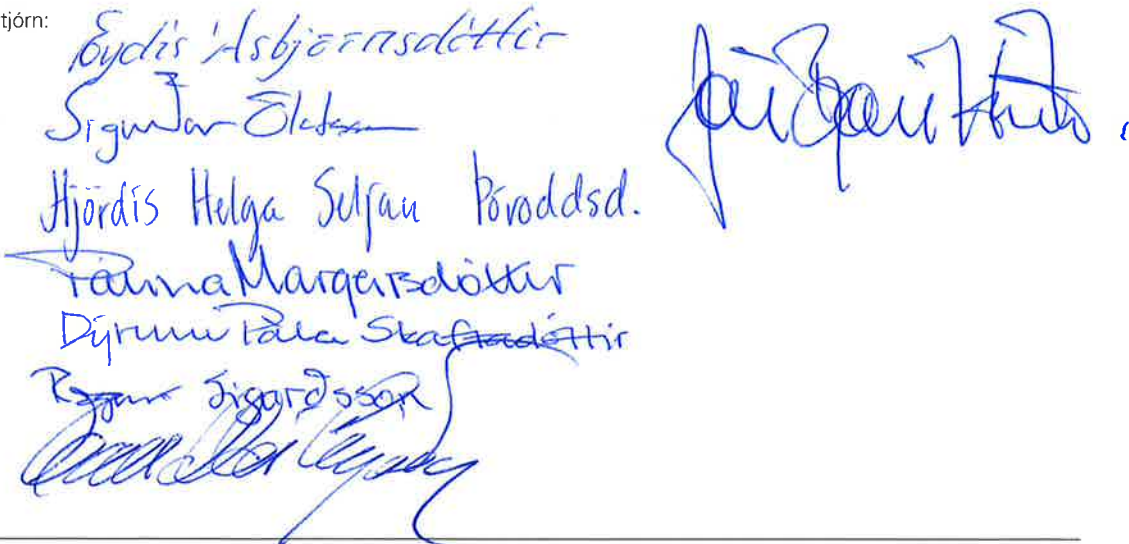 tjórn:
Eydís Ásbjörnsdóttir
Sigurður Ólafsson
Hjördís Helga Seljan Þóroddsd.
Pálína Margeirsdóttir
Dýrunn Pála Skaftadóttir
Ragnar Sigurðsson